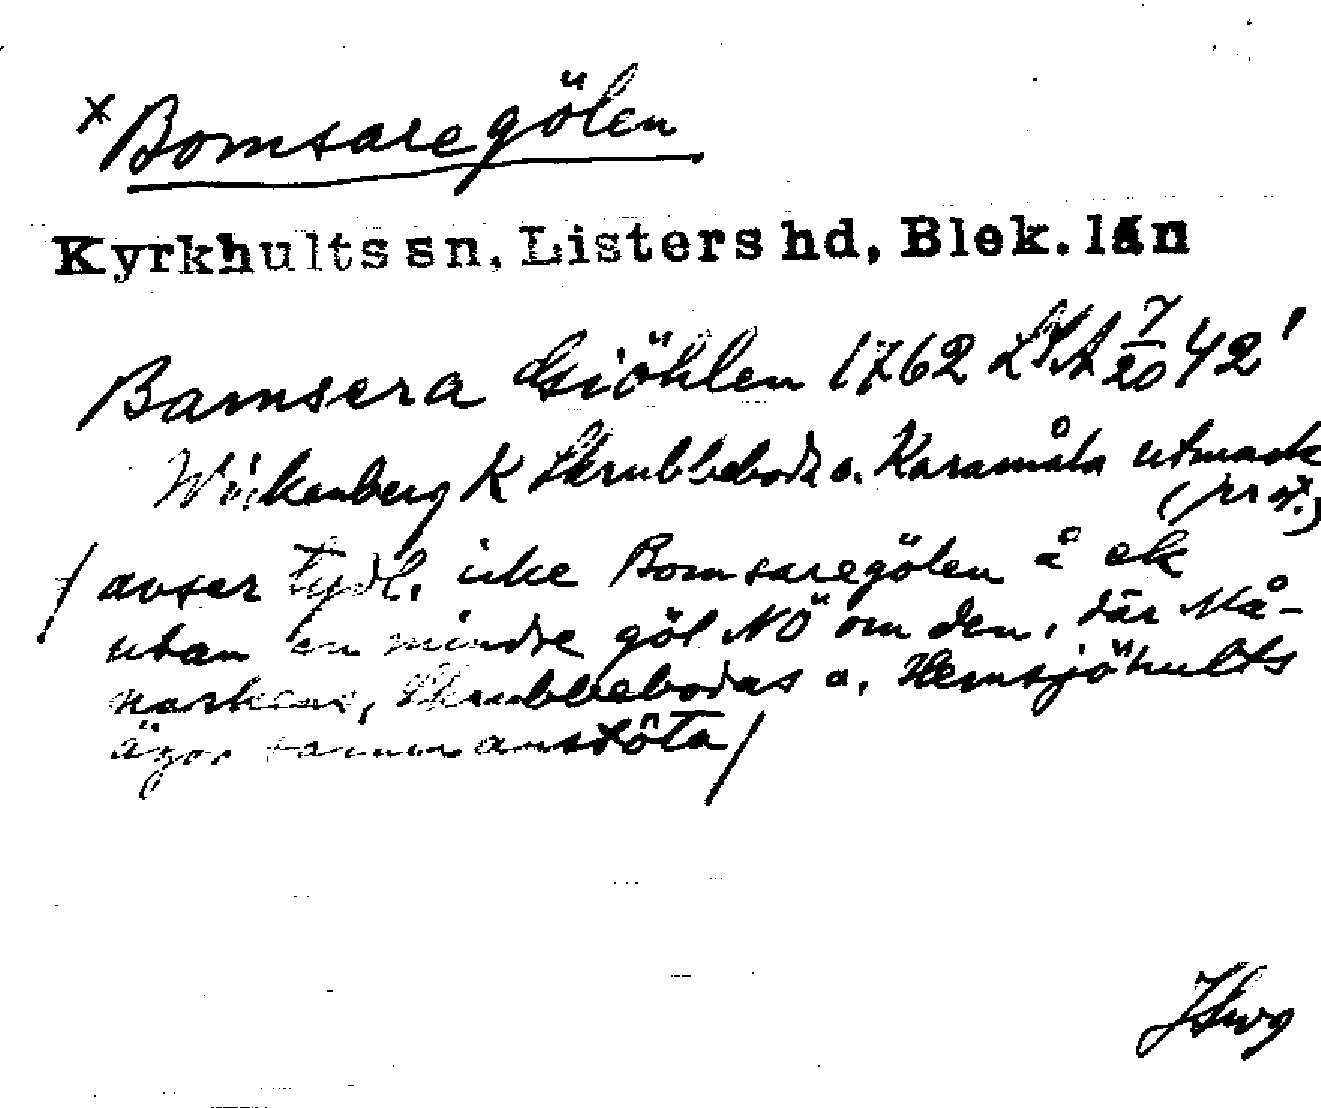 x Bomsaregölen
Kyrkhults sn, Listers hd, Blek. län
Bamsera Giöhlen 1762 LSA 7/20 42'
K Skrubbeboda o. Karamåla utmark
(prot.)
/avser tydl. icke Bomsaregölen å ek
utan en mindre göl NÖ om den, där Må-
narkens, Skrubbebodas o. Hemsjöhults
ägor sammanstöta/